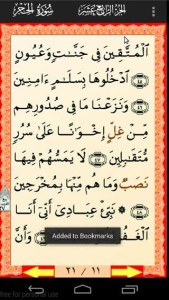 الجزء الرابع عشر سورة الحجر
ٱلْمُتَّقِينَ فِي جَنَّـٰتٍ وَعُيُونٍ
٤٥ ٱدْخُلُوهَا بِسَلَـٰمٍ ءَامِنِينَ
٤٦ وَنَزَعْنَا مَا فِي صُدُورِهِم
مِّنْ غِلٍّ إِخْوَٰنًا عَلَىٰ سُرُرٍ
مُّتَقَـٰبِلِينَ ٤٧ لَا يَمَسُّهُمْ فِيهَا
نَصَبٌ وَمَا هُم مِّنْهَا بِمُخْرَجِينَ
٤٨ نَبِّئْ عِبَادِي أَنِّي أَنَا
وَأَنَّ
Added to Bookmarks
٢١ / ١١
free for personal use